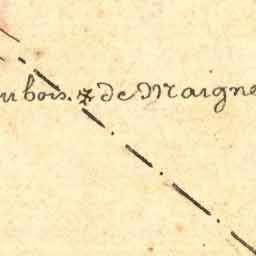 u bois. de Maigne